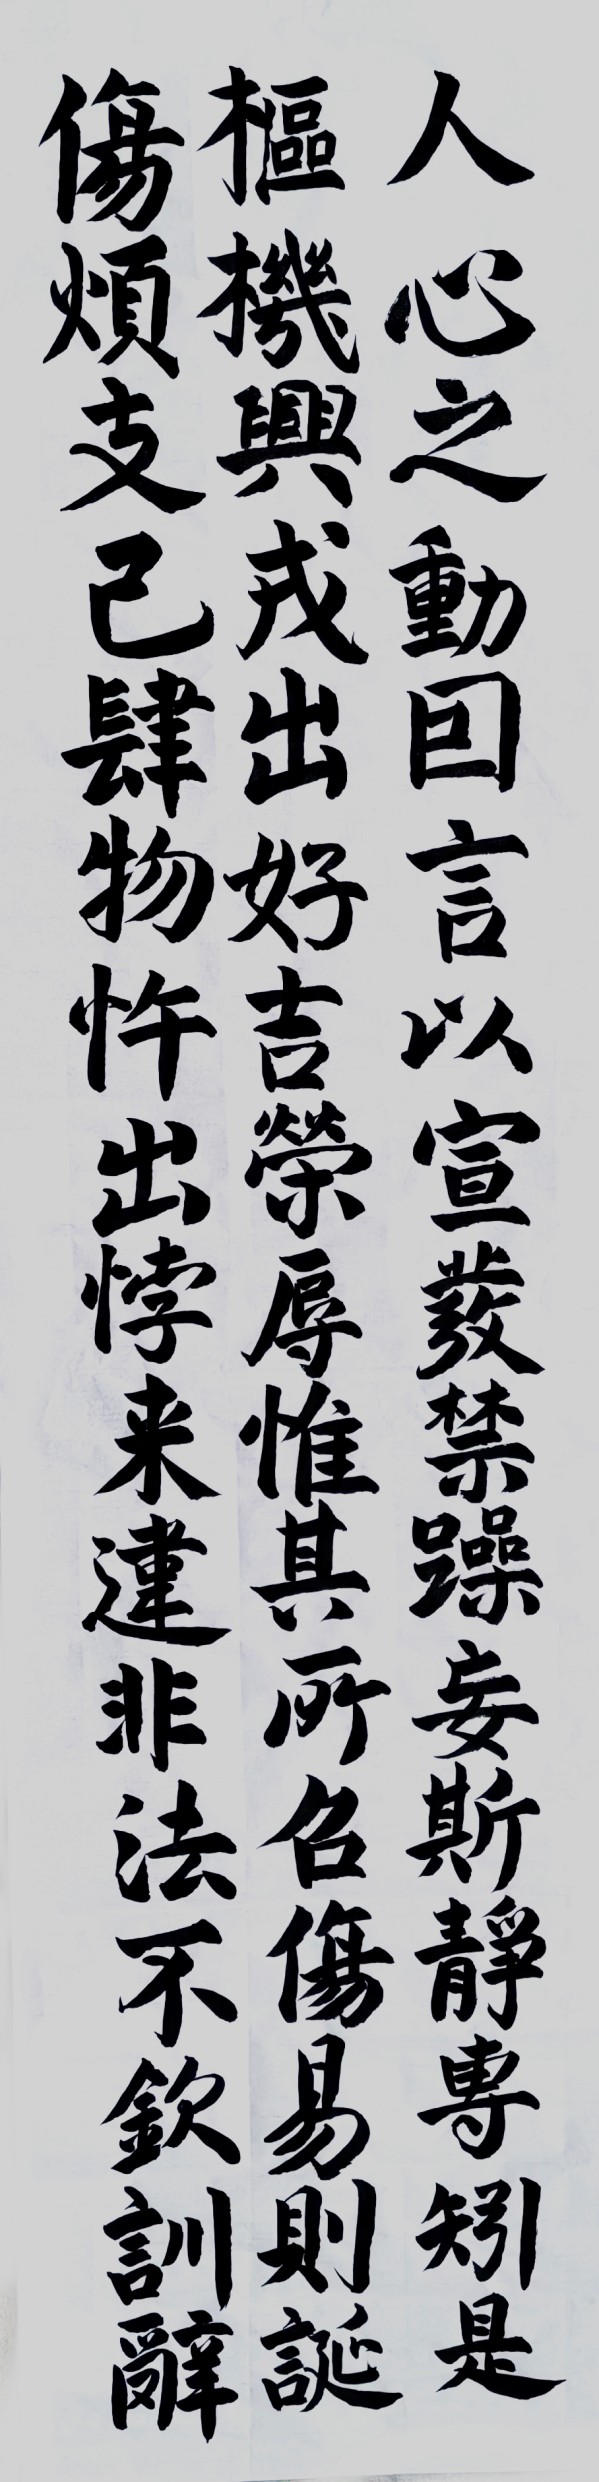 人心之動囙言以宣發禁躁妄斯靜專矧是
樞機興戎出好吉榮辱惟其所召傷易則誕
傷煩支己肆物忤出悖来違非法不欽訓辭